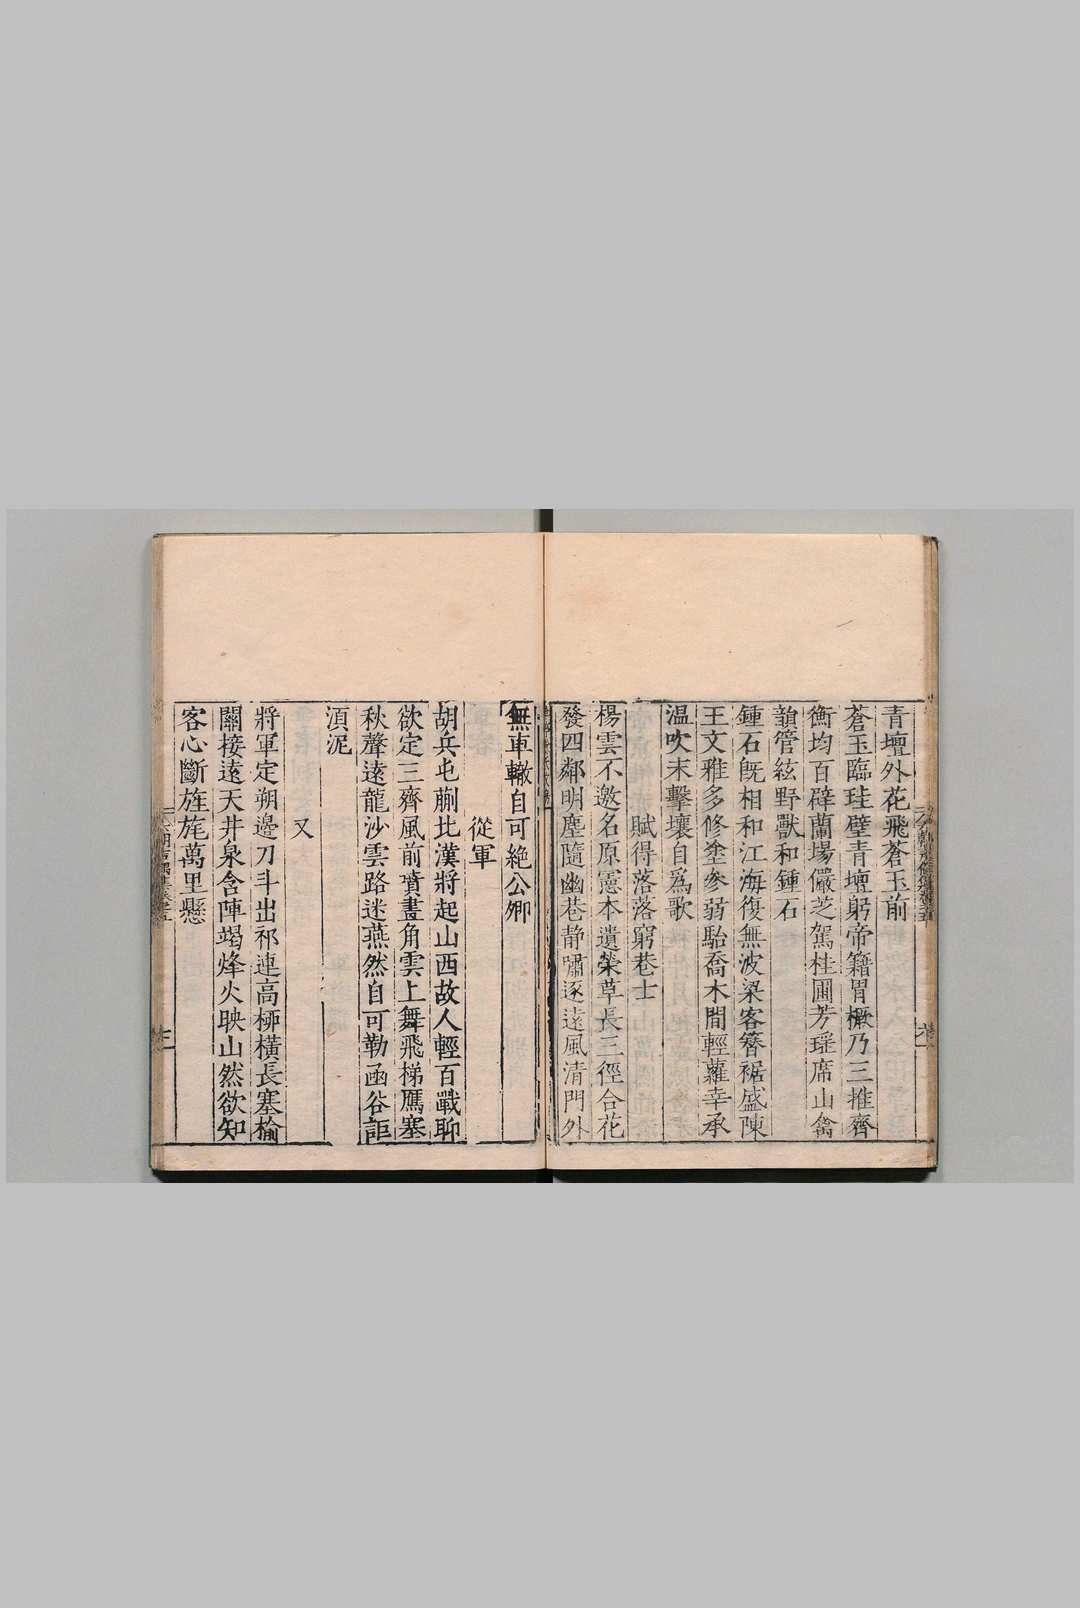 青壇外花飛蒼玉前
蒼玉臨珪璧青壇躬帝籍冐橛乃三推齊
衡均百辟蘭場儼芝駕桂圃芳瑶席山禽
韻管絃野獸和鍾石
鍾石旣相和江海復無波梁客簪裾盛陳
王文雅多修塗參弱駘喬木間輕蘿幸承
温吹末擊壤自爲歌
賦得落落窮巷士
楊雲不邀名原憲本遺榮草長三徑合花
發四鄰明塵隨幽巷静嘯逐遠風清門外
無車轍自可絶公卿
從軍
胡兵屯薊北漢將起山西故人輕百戰聊
欲定三齊風前噴畫角雲上舞飛梯鴈塞
秋聲遠龍沙雲路迷燕然自可勒函谷詎
湏泥
又
將軍定朔邊刀斗出祁連高栁橫長塞榆
關接遠天井泉含陣竭烽火映山然欲知
客心斷旌旄萬里懸